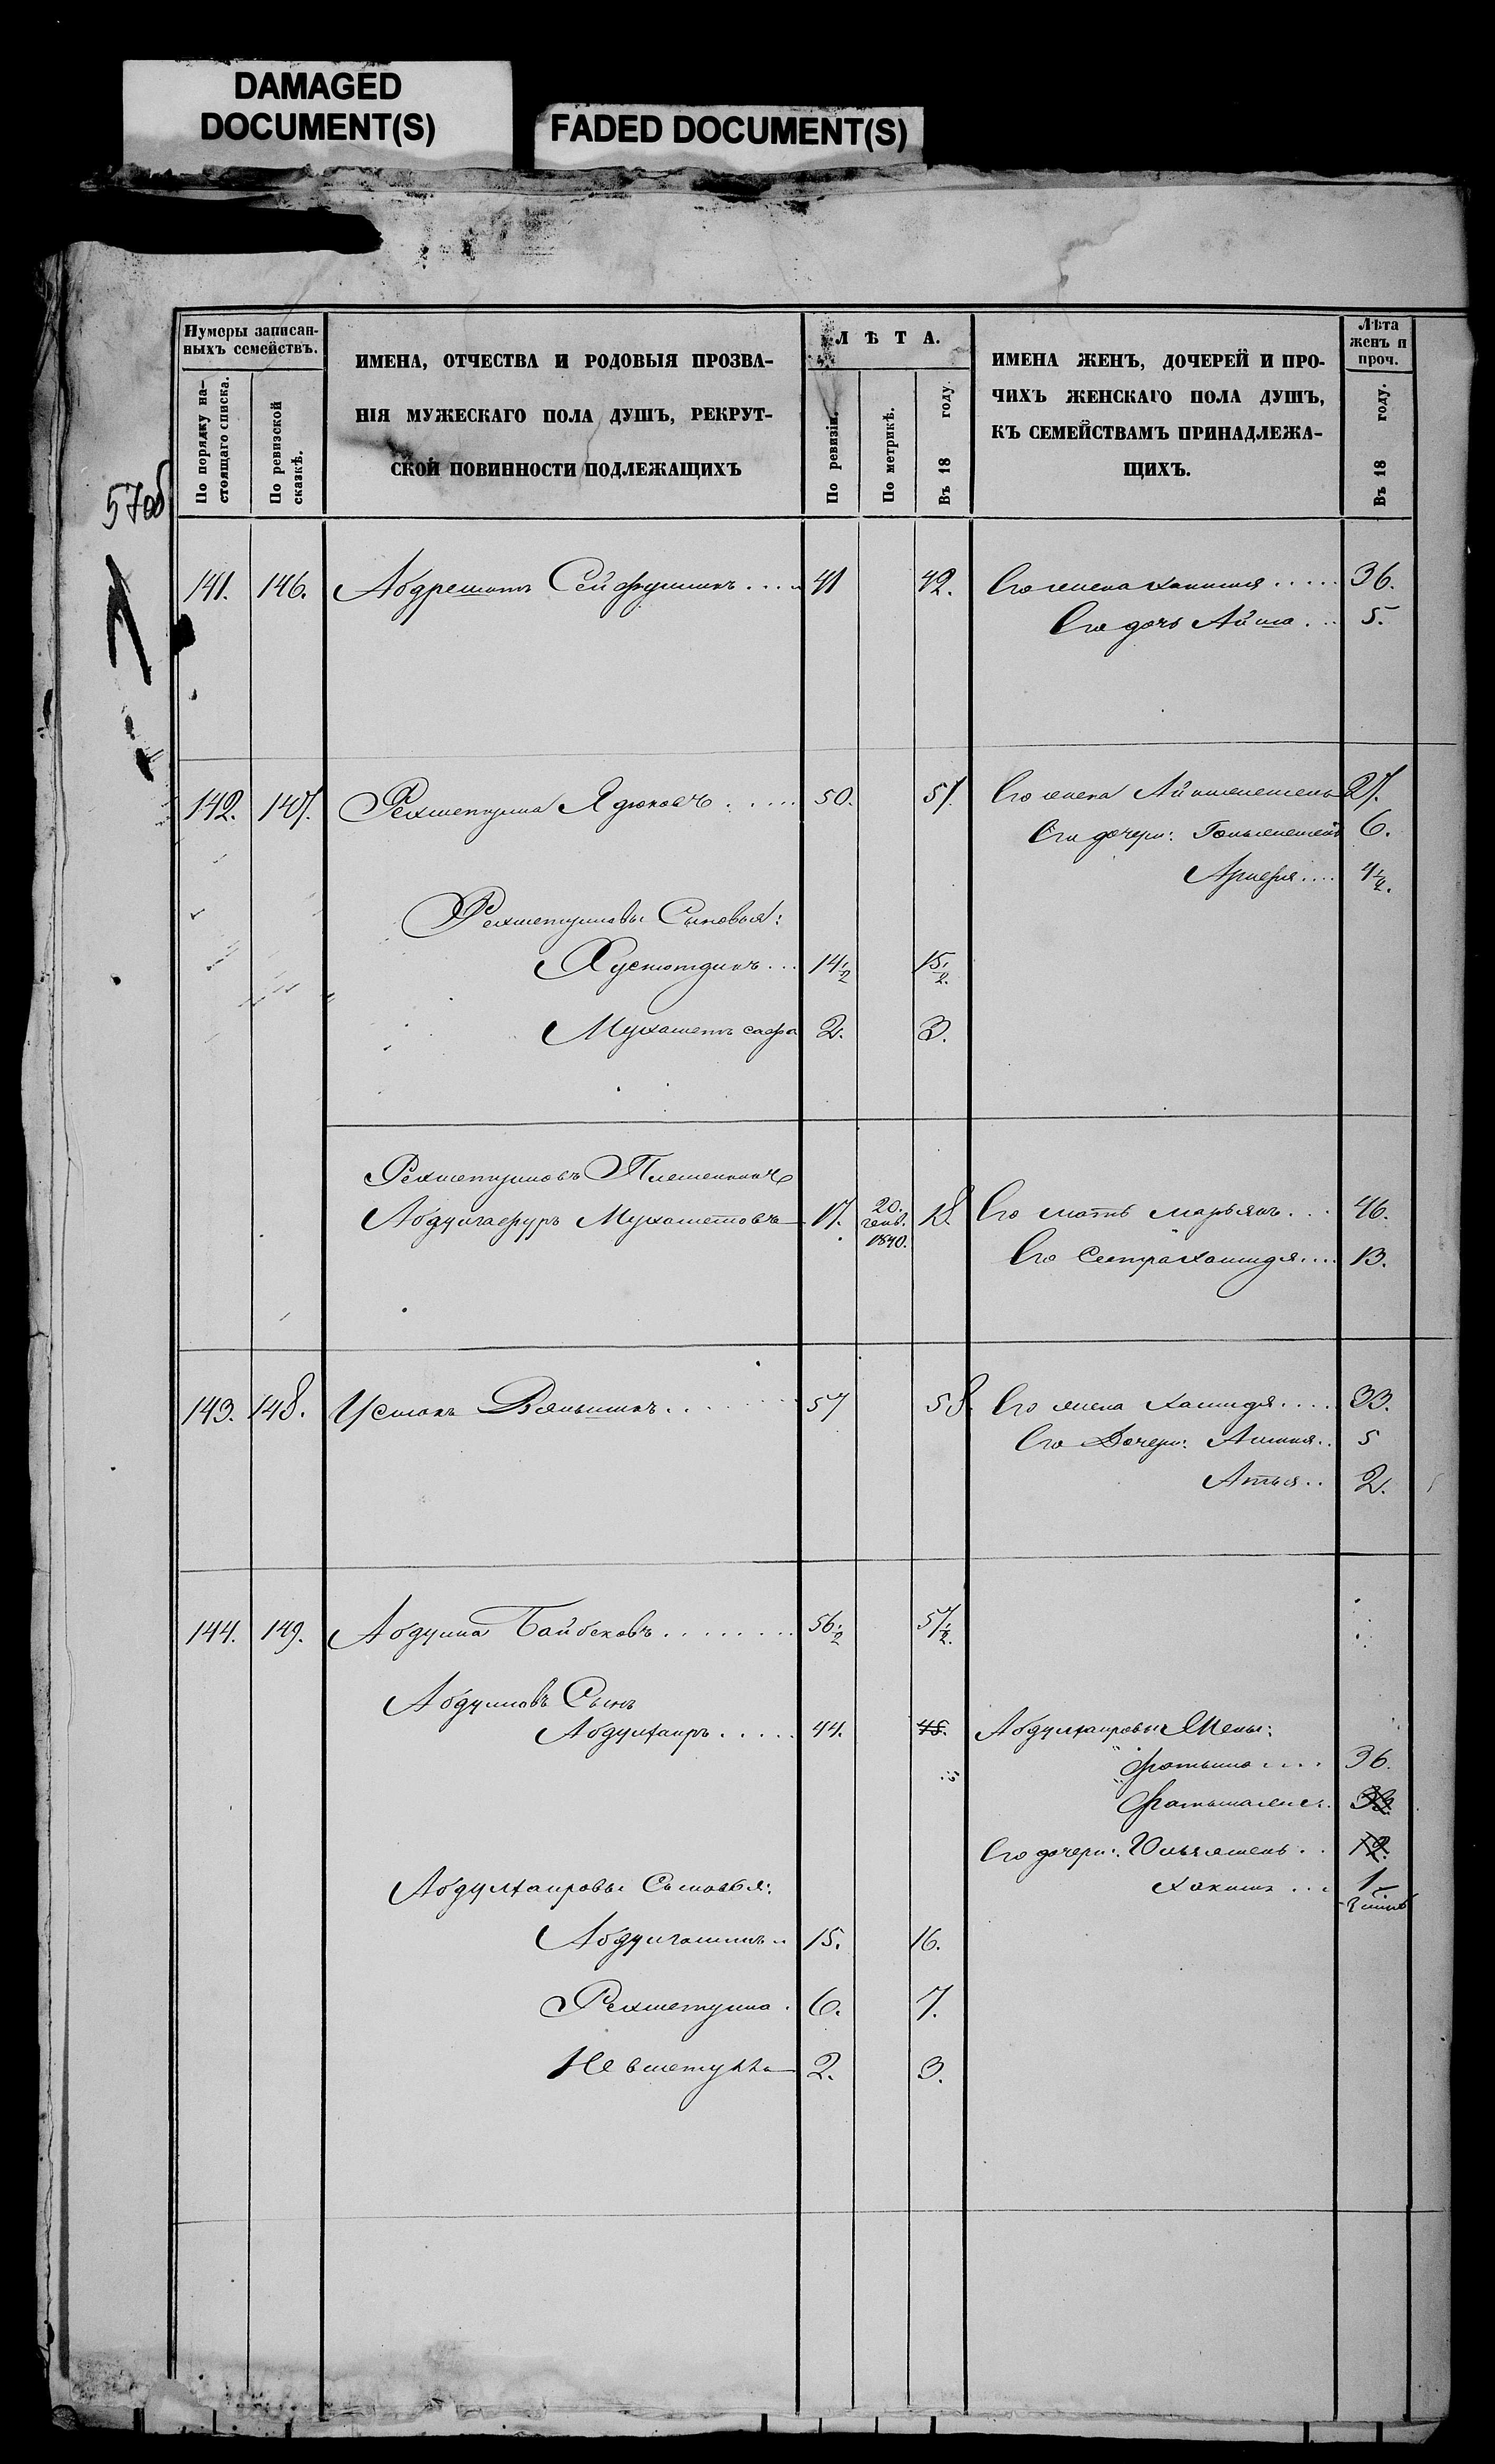 DAMAGED
DOCUMENT(S)
FADED DOCUMENT(S)
Нумеры записан-
ныхъ семействъ.
По порядку на-
стоящаго списка.
По ревизской
сказкѣ.
ИМЕНА, ОТЧЕСТВА И РОДОВЫЯ ПРОЗВА-
НІЯ МУЖЕСКАГО ПОЛА ДУШЪ, РЕКРУТ-
СКОЙ ПОВИННОСТИ ПОДЛЕЖАЩИХЪ
ЛѢТА.
По ревизіи.
По метрикѣ.
Въ 18 году.
ИМЕНА ЖЕНЪ, ДОЧЕРЕЙ И ПРО-
ЧИХЪ ЖЕНСКАГО ПОЛА ДУШЪ,
КЪ СЕМЕЙСТВАМЪ ПРИНАДЛЕЖА-
ЩИХЪ.
Лѣта
женъ и
проч.
Въ 18 году.
57об
141. 146. Абдрешитъ Сейфуллинъ . . . . 41 42. Его жена . . . . . 36.
Его дочь Айша . . . 5.
142. 147. Рахметулла . . . . . 50. 51. Его жена 27.
Его дочери: 6.
4 1/2.
Рахметулловы Сыновья:
Хусютдинъ . . . 14 1/2 15 1/2.
Мухаметъ сафа 2. 3.
Рахметулловъ Племянникъ
Абдулгафуръ Мухаметовъ 17. 20. генв. 1840. 18. Его мать Марьямъ . . . 46.
Его Сестра Хамидя . . . . 13.
143. 148. Усманъ . . . . . . . . 57 58. Его жена Хамидя . . . . 33.
Его Дочери: 5
Атья . . 2.
144. 149. Абдулла Байбековъ . . . . . . . . 56 1/2 57 1/2.
Абдулловъ Сынъ
Абдулхаиръ . . . . . 44. 45. Абдулхаировы Жены:
Фатыма . . . . 36.
Его дочери: . . 12.
1
Абдулхаировы Сыновья:
15. 16.
Рахметулла . 6. 7.
Невметулла 2. 3.